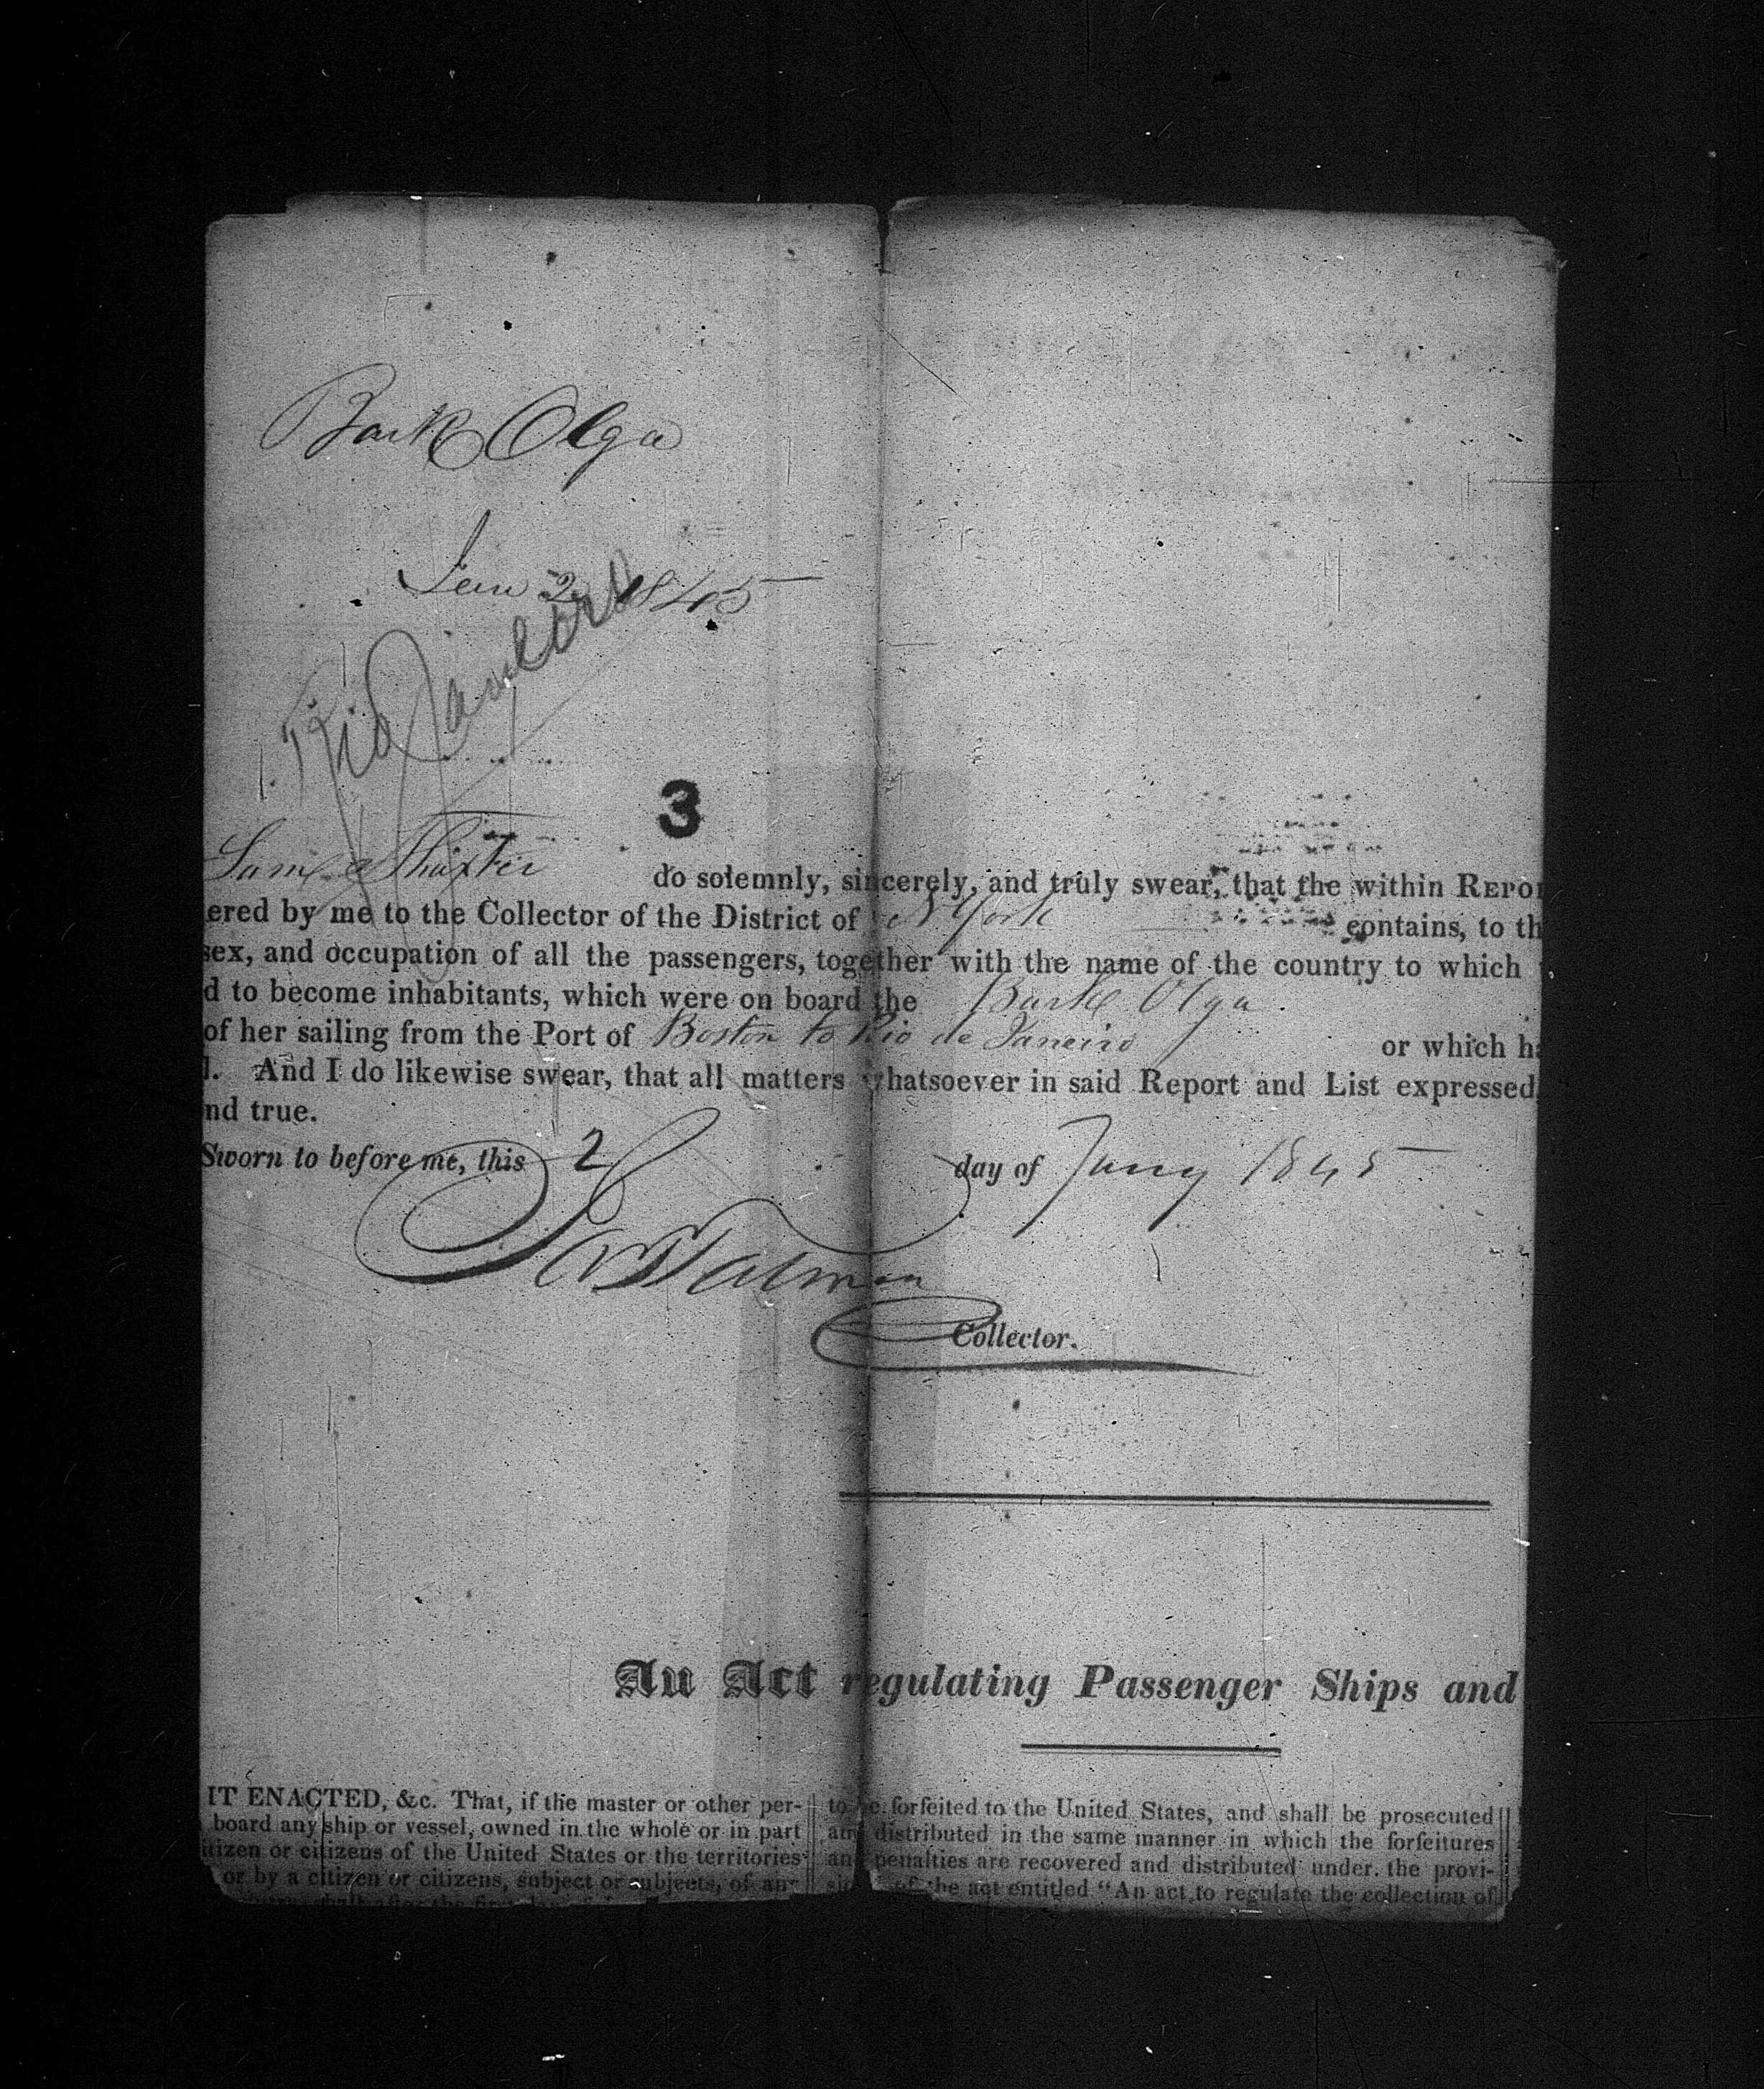 Bark Olga
Jan 2 1845
Rio Janeiro
3
Saml Thaxter do solemnly, sincerely, and truly swear, that the within REPOR
ered by me to the Collector of the District of N York contains, to th
sex, and occupation of all the passengers, together with the name of the country to which
d to become inhabitants, which were on board the Bark Olga.
of her sailing from the Port of Boston to Rio de Janeiro or which ha
d. And I do likewise swear, that all matters whatsoever in said Report and List expressed
nd true.
Sworn to before me, this 2 day of Jany 1845
Talman
Collector.
An Act regulating Passenger Ships and
IT ENACTED, &c. That, if the master or other per-
board any ship or vessel, owned in the whole or in part
itizen or citizens of the United States or the territories
or by a citizen or citizens, subject or subjects, of an-
to be forfeited to the United States, and shall be prosecuted
and distributed in the same manner in which the forfeitures
and penalties are recovered and distributed under the provi-
of the act entitled "An act to regulate the collection of